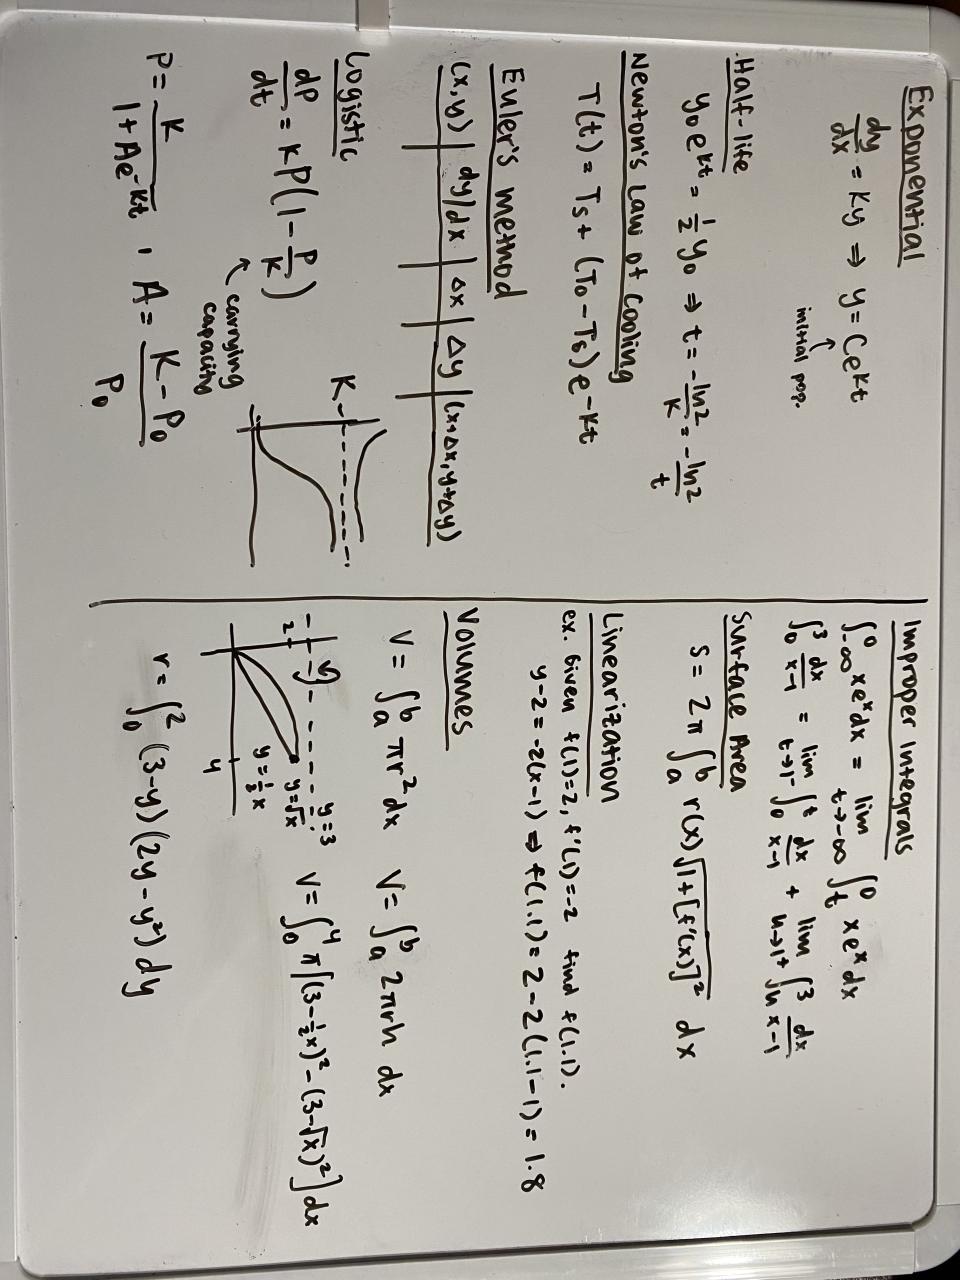 Exponential
dy/dx = Ky ⇒ y = Ce^kt
initial pop.
Half-life
y₀e^kt = 1/2 y₀ ⇒ t = -ln2/K = -ln2/t
Newton's Law of Cooling
T(t) = Ts + (T₀ - Ts)e^-kt
Euler's method
(x,y) | dy/dx | Δx | Δy | (x+Δx, y+Δy)
Logistic
dP/dt = KP(1 - P/K)
carrying capacity
K
P = K/(1 + Ae^-kt) , A = (K - P₀)/P₀
Improper Integrals
∫_-∞^0 xe^x dx = lim_t→-∞ ∫_t^0 xe^x dx
∫_0^3 dx/(x-1) = lim_t→1⁻ ∫_0^t dx/(x-1) + lim_u→1⁺ ∫_u^3 dx/(x-1)
Surface Area
S = 2π ∫_a^b r(x) √(1+[f'(x)]²) dx
Linearization
ex. Given f(1)=2, f'(1)=-2 find f(1.1).
y-2 = -2(x-1) ⇒ f(1.1) = 2-2(1.1-1) = 1.8
Volumes
V = ∫_a^b πr² dx V = ∫_a^b 2πrh dx
y=3
2
y=√x
y=1/2 x
4
V = ∫_0^4 π[(3-1/2 x)² - (3-√x)²] dx
r = ∫_0^2 (3-y)(2y-y²) dy